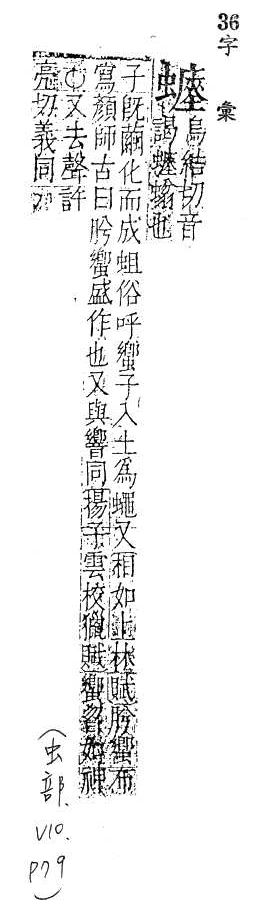 36字彙
烏結切音
謁蠮螉也
子既繭化而成蛆俗呼蠁子入土爲蠅又相如上林賦肸蠁布
寫顏師古曰肸蠁盛作也又與響同揚子雲校獵賦蠁曶如神
○又去聲許
亮切義同
(虫部.
V10.
P79)